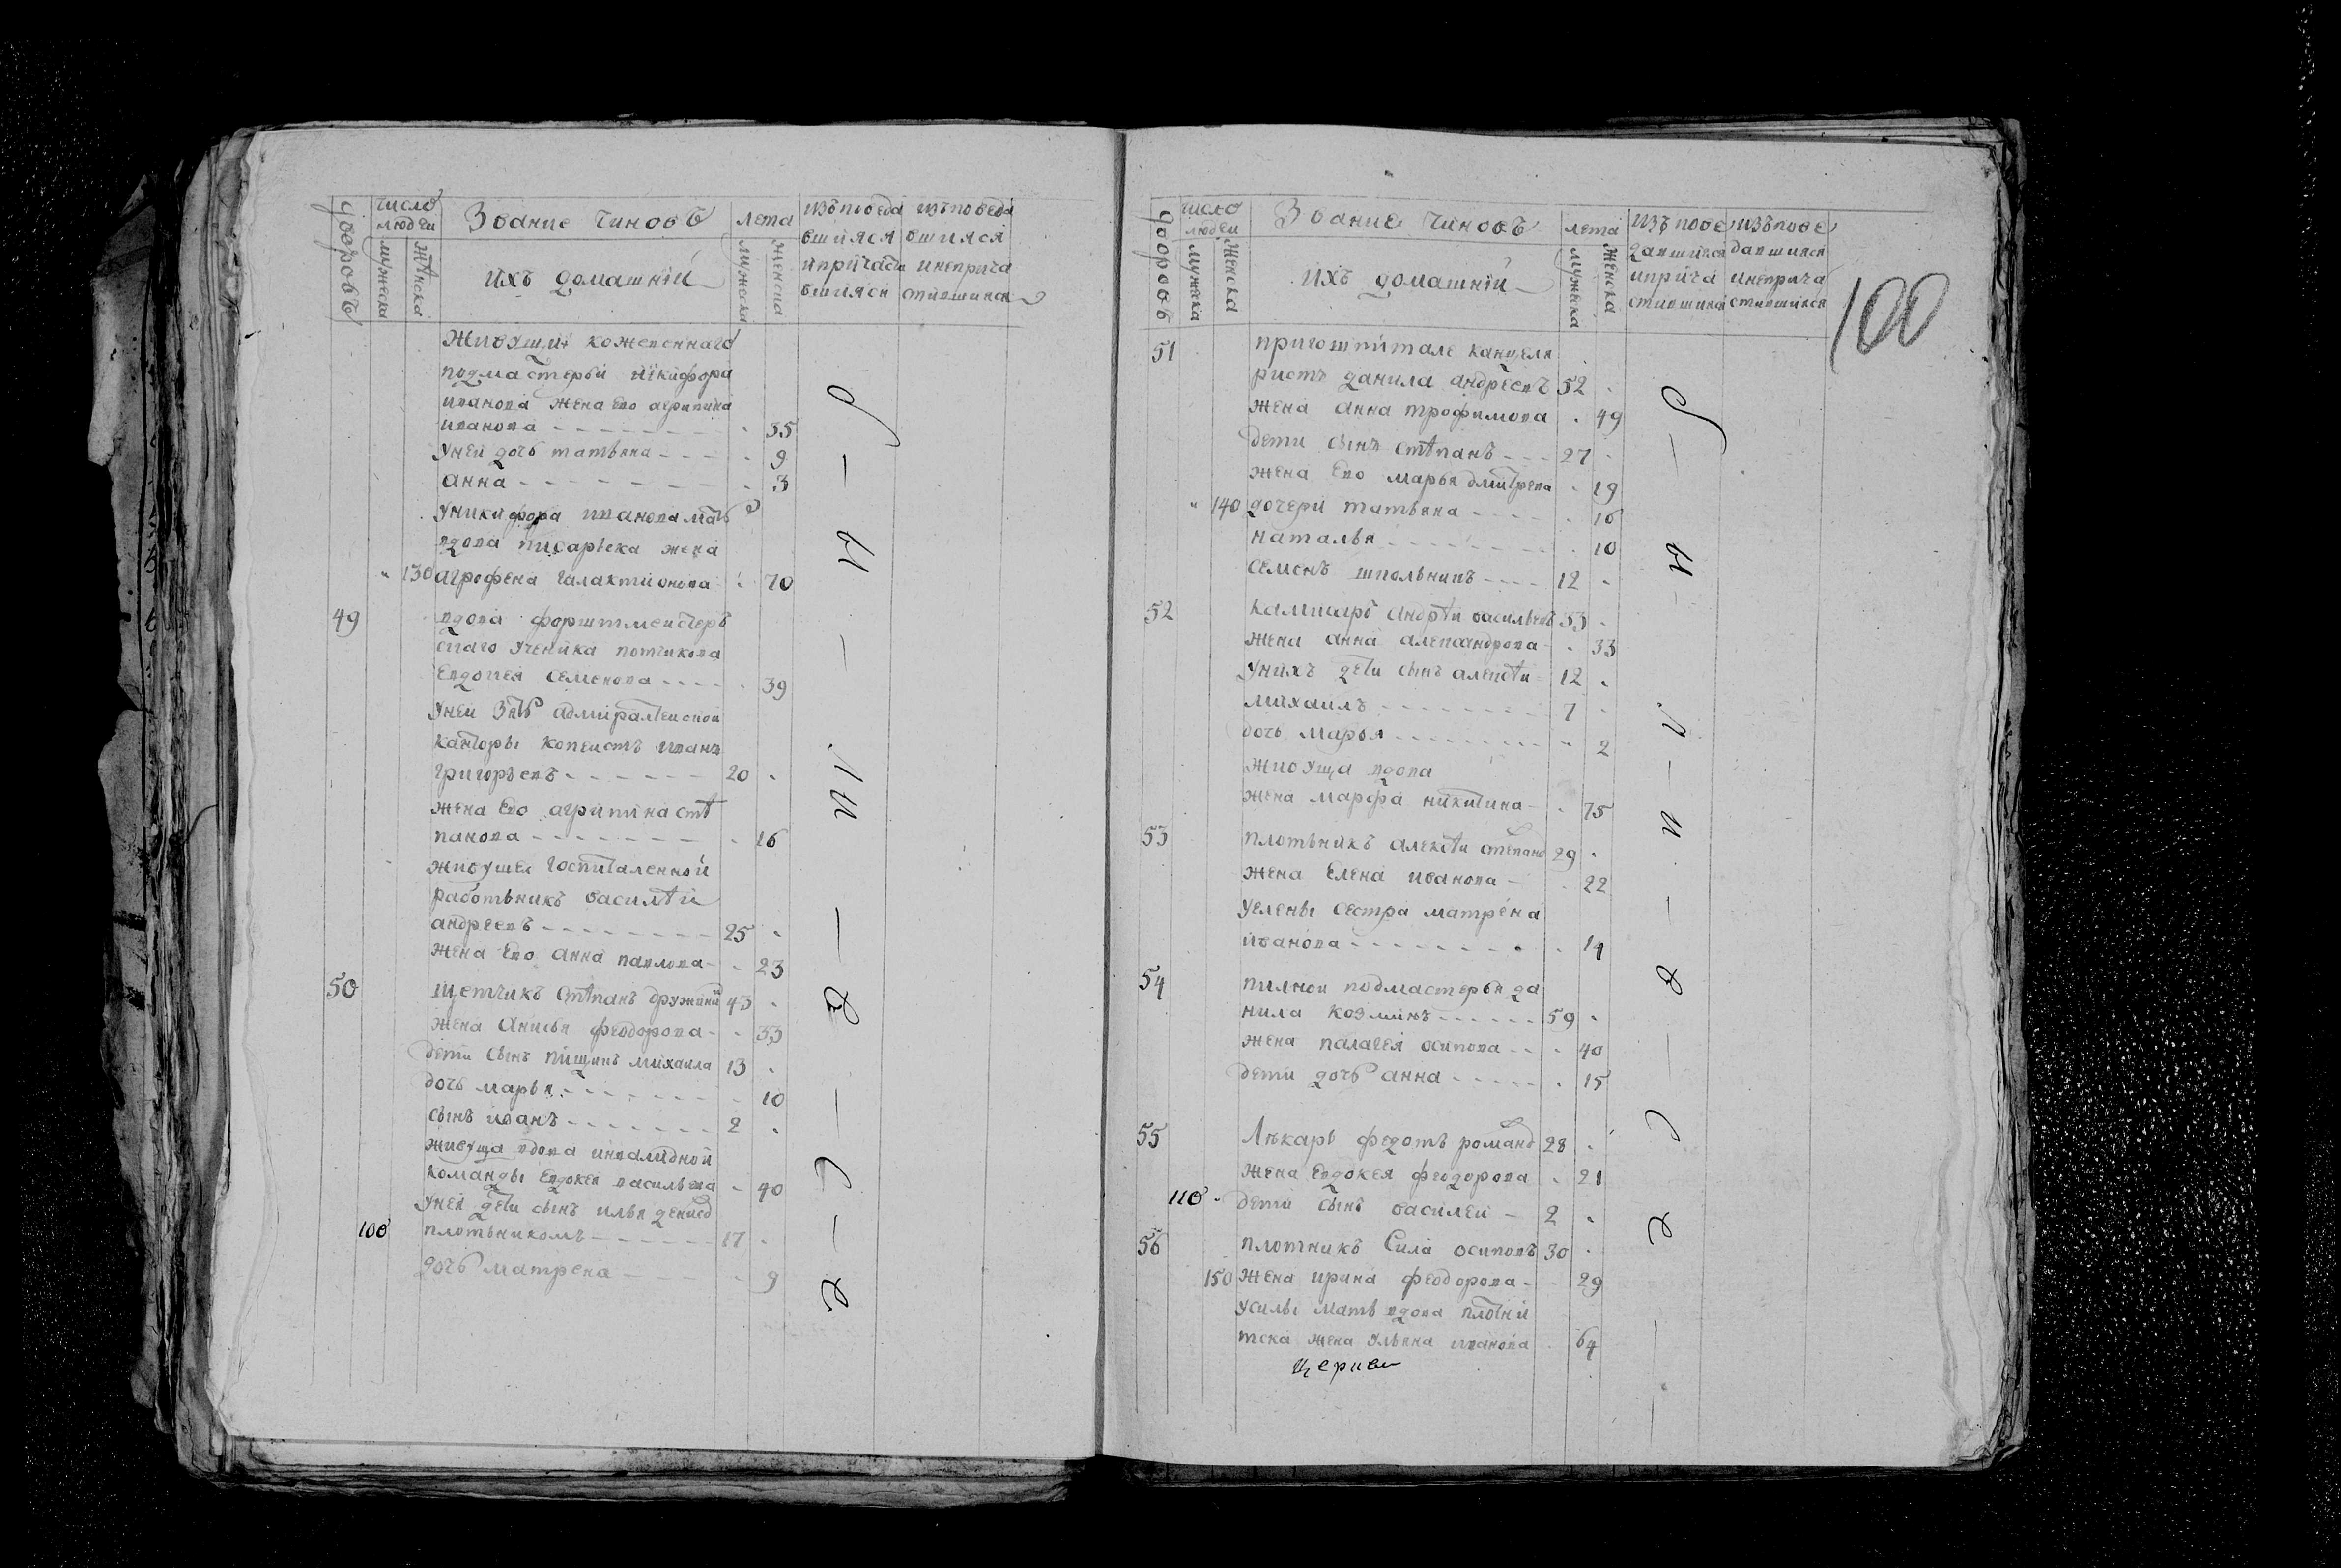 дворовъ
число
людей
мужеска
женска
Звание чиновъ
ихъ домашнiй
лета
мужеска
женска
изъповеда
вшияся
ипричасти
вшияся
изъповеда
вшияся
инеприча
стившияся
Живущиi кожевеннаго
подмастерьи никифора
иванова жена Ево агрипина
иванова - - - - 35
уней дочь татьяна - - - 9
анна - - - - 3
уникифора иванова мать
вдова писарьска жена
130 агрофена галактионова 70
49 вдова форштмейстеръ
скаго ученика
Евдокея семенова - - - 39
уней зять адмиралтейской
канторы копеистъ иванъ
григорьевъ - - - - 20
жена Ево агрипина стѣ
панова - - - - 16
живущеи госпиталенной
работьникъ василѣй
андреевъ - - - - 25
жена Ево анна павлова - 23
50 щетчикъ стѣпанъ дружинин 43
жена анисья феодорова - 33
дети сынъ михаила 13
дочь марья - - - - 10
сынъ иванъ - - - - 2
живуща вдова инвалидной
команды Евдокея васильева - 40
уней дети сынъ илья денисов
100 плотьникомъ - - - - 17
дочь матрена - - - - 9
100
дворовъ
число
людей
мужеска
женска
Звание чиновъ
ихъ домашнiй
лета
мужеска
женска
изъпове
давшияся
иприча
стившияся
изъпове
давшияся
инеприча
стившияся
51 пригошпитале канцеля
ристъ данила андреевъ 52
жена анна трофимова 49
дети сынъ стѣпанъ - - - 27
жена Ево марья дмитрева 19
140 дочери татьяна - - - - 16
наталья - - - - 10
семенъ школьникъ - - - - 12
52 андрѣй васильевъ 33
жена анна александрова - 33
унихъ дети сынъ алексѣи 12
михаилъ - - - - 7
дочь марья - - - - 2
живуща вдова
жена марфа никитина - 75
53 плотьникъ алексѣи степанов 29
жена Елена иванова - 22
уелены сестра матрена
иванова - - - - 14
54 пилной подмастерья да
нила козминъ - - - - 59
жена палагея осипова - - 40
дети дочь анна - - - - 15
55 Лѣкарь федотъ романов 28
жена Евдокея феодорова 21
110 дети сынъ василеи - 2
56 плотникъ Сила осиповъ 30
150 жена ирина феодорова - 29
усилы мать вдова плотни
тска жена ульяна иванова 64
церкви